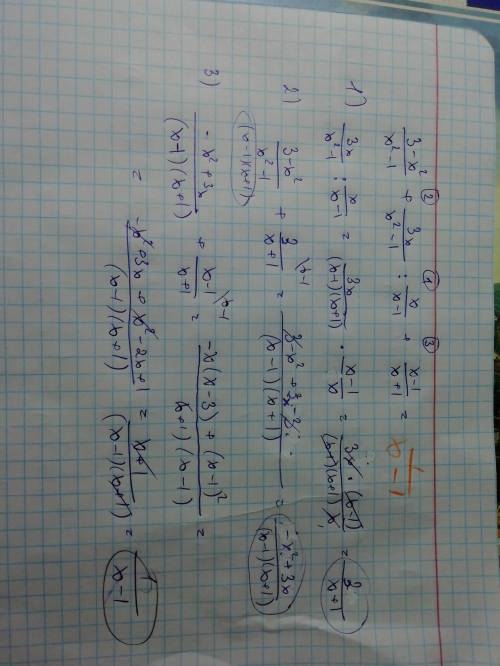 (3-x²)/(x²-1) + (3x)/(x²-1) : x/(x-1) + (x-1)/(x+1) = 1/(x-1)
② ① ③
1) 3x/(x²-1) : x/(x-1) = 3x/((x-1)(x+1)) · (x-1)/x = 3x·(x-1)/((x-1)(x+1)x) = 3/(x+1)
2) (3-x²)/(x²-1) + 3/(x+1) \x-1 = (3-x²+3x-3)/((x-1)(x+1)) = (-x²+3x)/((x-1)(x+1))
(x-1)(x+1)
3) (-x²+3x)/((x-1)(x+1)) + (x-1)/(x+1) \x-1 = (-x(x-3)+(x-1)²)/((x+1)(x-1)) =
= (-x²+3x+x²-2x+1)/((x-1)(x+1)) = (x+1)/((x-1)(x+1)) = 1/(x-1)